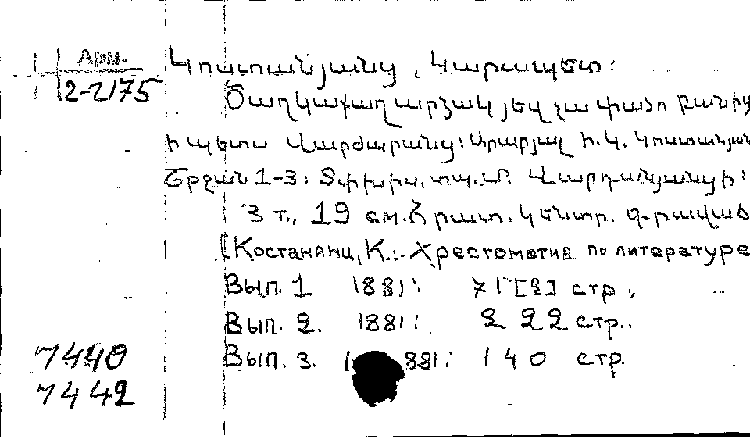 Арм.
2-2175
Կոստանյանց, Կարապետ:
Ծաղկաքաղ արձակ յեվ չափածո բանից
ի պետս վարժարանց: Արարյալ ի Կ. Կոստանյան
Շրջան 1-3: Տփխիս, տպ. Մ. Վարդանյանցի:
3 т., 19 см. Հրատ. Կենտր. գրավաճ
[Костанянц, К.:- Хрестоматия по литературе
Вып. 1 1881: 71 [8] стр.
Вып. 2. 1881: 222 стр.
Вып. 3. 1881: 140 стр.
7440
7442